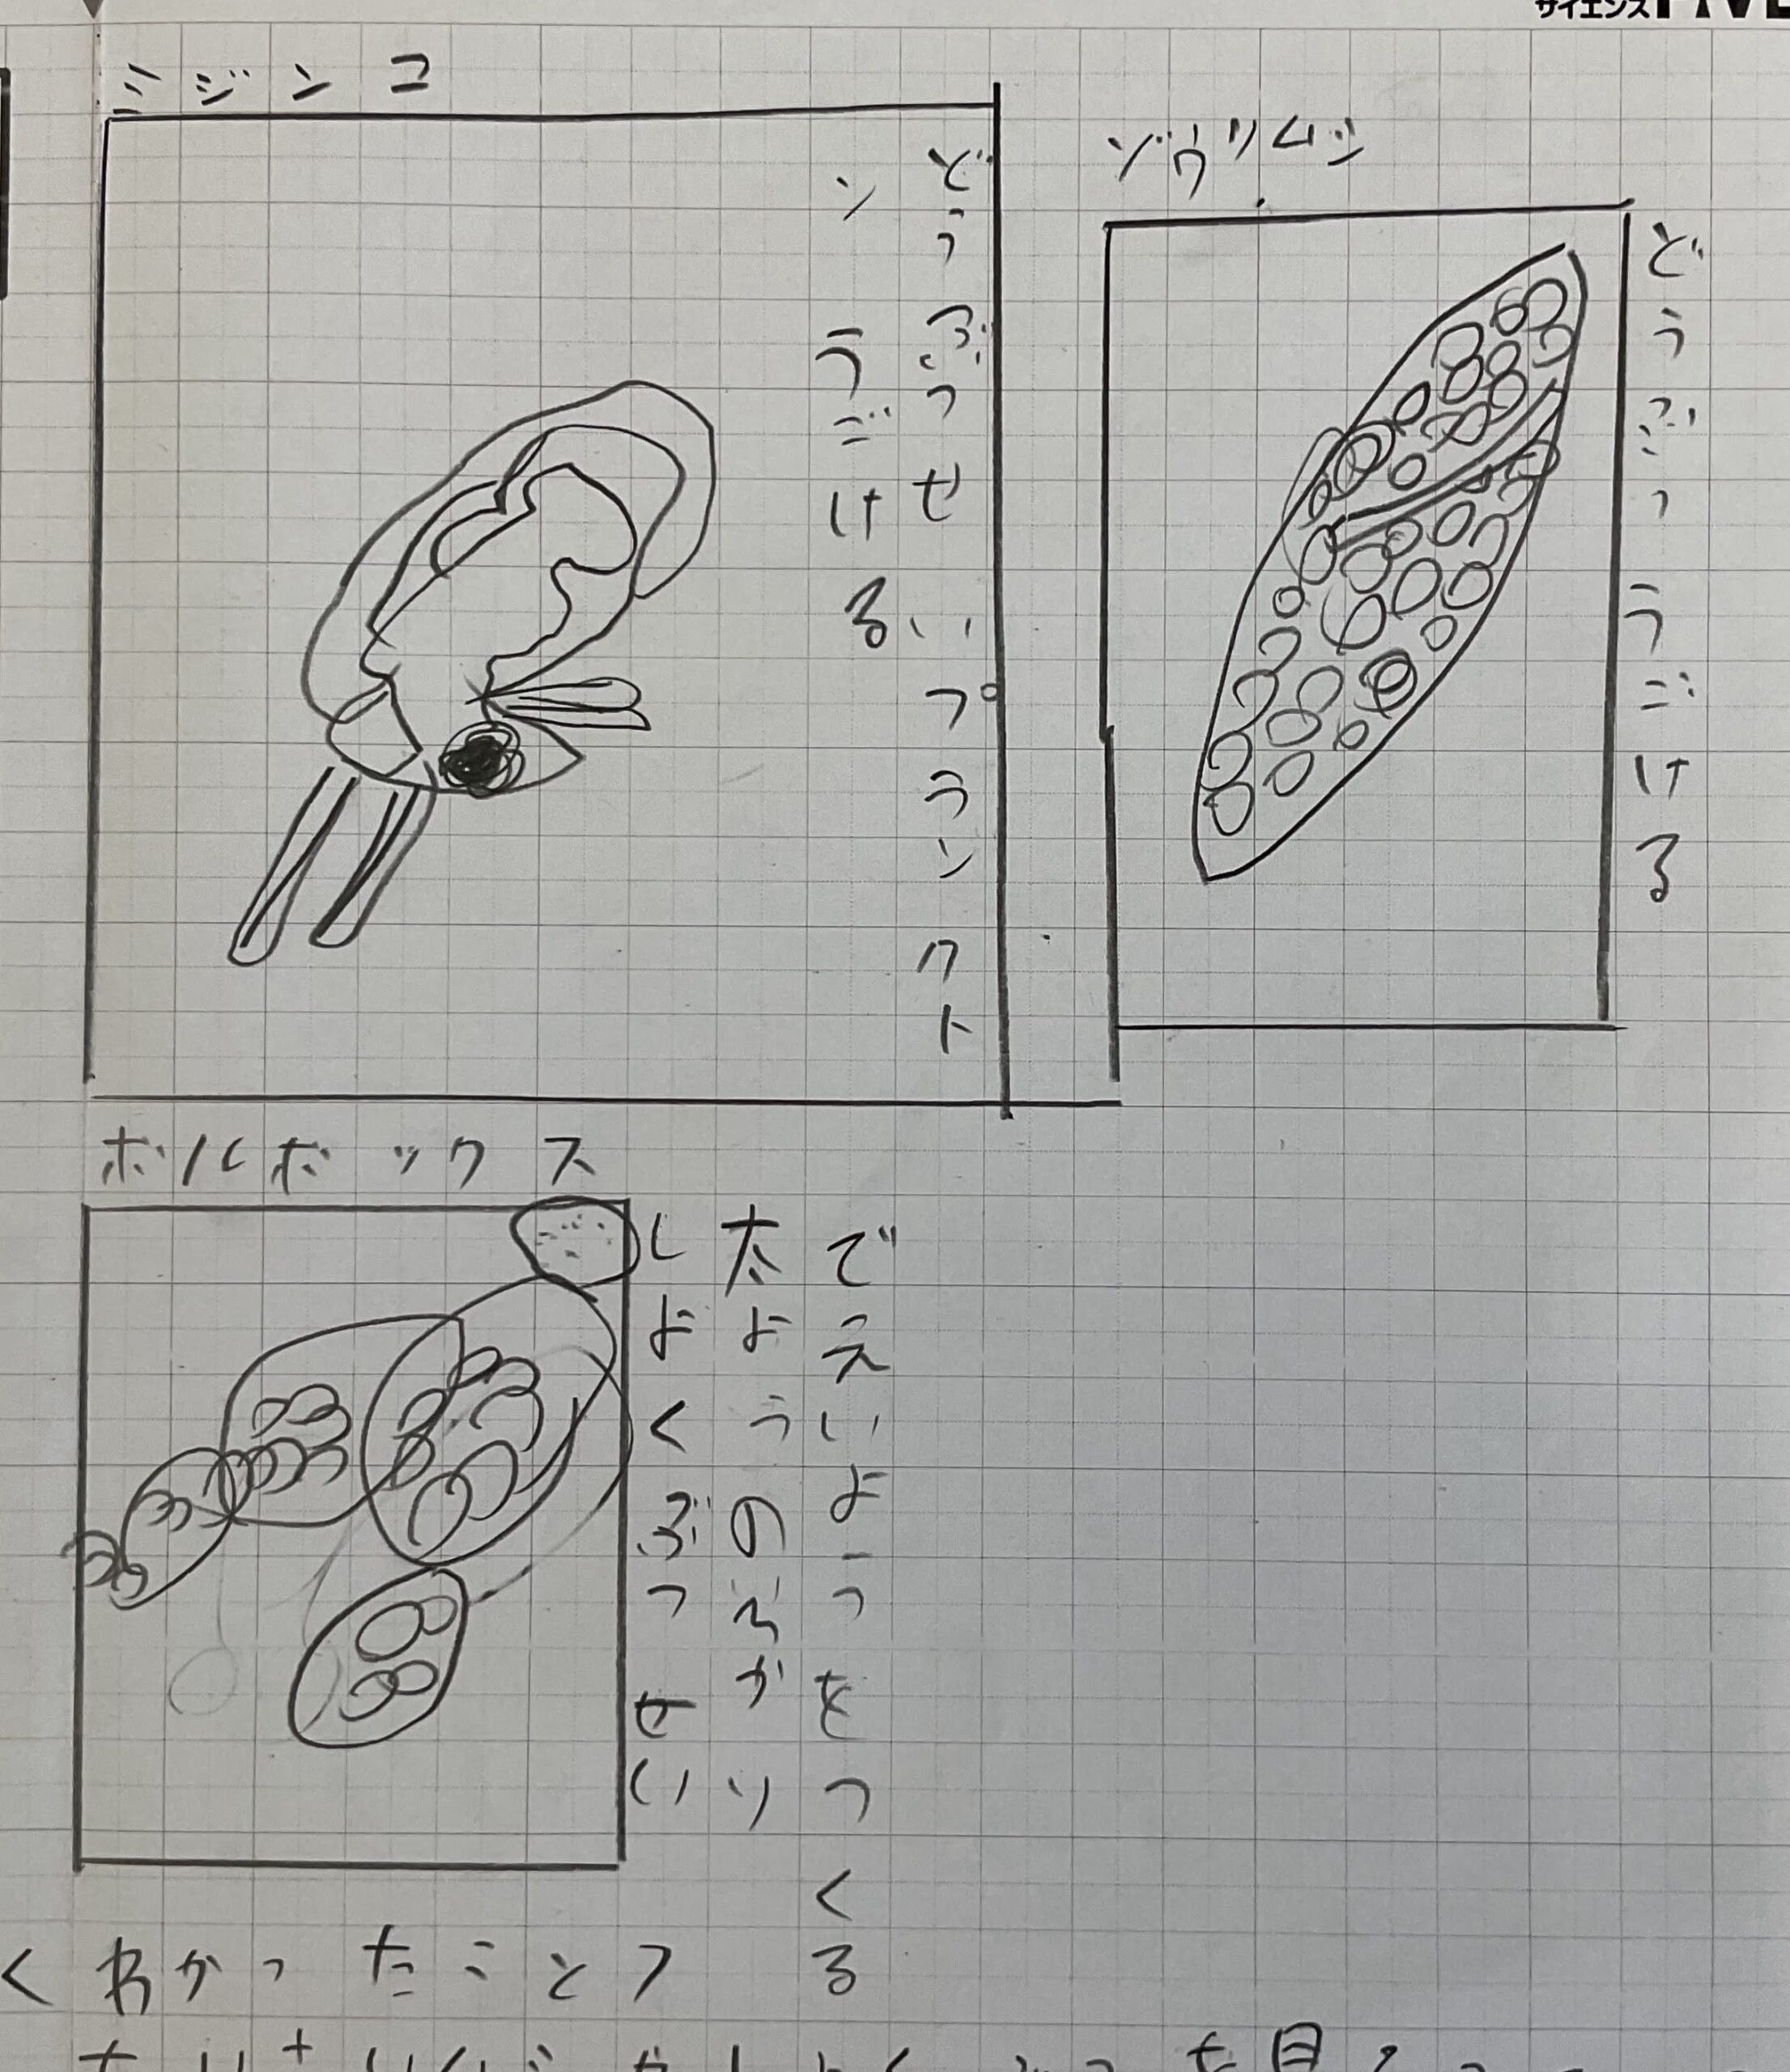 サイエンス
ミジンコ
どうぶつせいプランクト
ン うごける
ゾウリムシ
どうぶつ うごける
ボルボックス
しょくぶつせい
太ようのひかり
でえいようをつくる
＜わかったこと＞